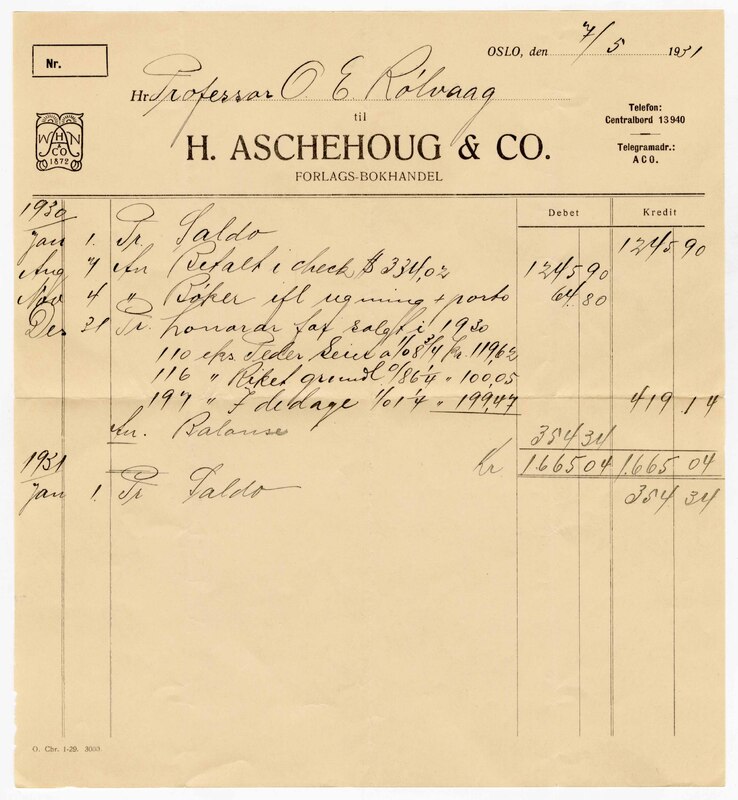 Nr.
OSLO, den 7/5 1931
Hr. Professor O E Rölvaag
til
H. ASCHEHOUG & CO.
FORLAGS-BOKHANDEL
W H N
A
& CO
1872
Telefon:
Centralbord 13940
Telegramadr.:
ACO.
Debet Kredit
1930
Jan 1. Pr. Saldo 1245 90
Aug 7 An Betalt i check $ 334,02 1245 90
Nov 4 " Bøker ifl regning + porto 64.80
Des 31 Pr. honorar for solgt i 1930
110 eks. Peder Seier a 1/08 3/4 kr. 119,62
116 " Riket grundl 0/86 1/4 " 100,05
197 " I de dage 1/01 1/4 " 199,47 419 14
An. Balanse 354 34
Kr 1.665 04 1.665 04
1931
Jan 1. Pr Saldo 354 34
O. Chr. 1-29. 3000